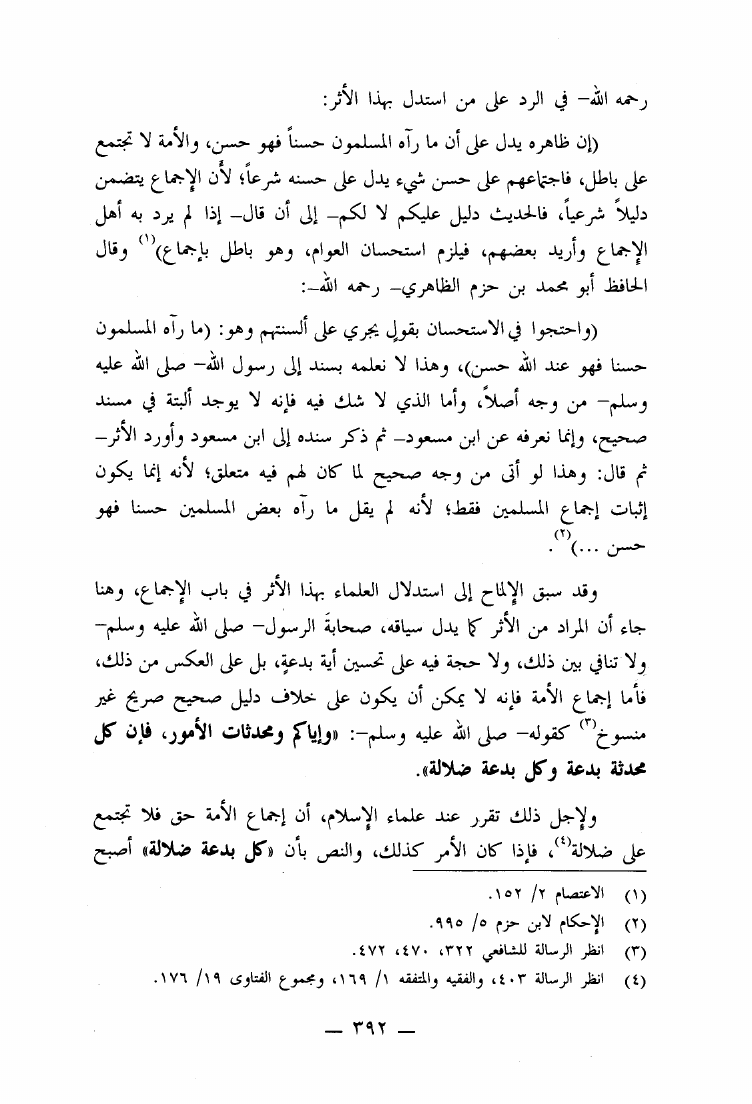 رحمه الله– في الرد على من استدل بهذا الأثر:
(إن ظاهره يدل على أن ما رآه المسلمون حسناً فهو حسن، والأمة لا تجتمع
على باطل، فاجتماعهم على حسن شيء يدل على حسنه شرعاً؛ لأن الإجماع يتضمن
دليلاً شرعياً، فالحديث دليل عليكم لا لكم– إلى أن قال– إذا لم يرد به أهل
الإجماع وأريد بعضهم، فيلزم استحسان العوام، وهو باطل بإجماع)(١) وقال
الحافظ أبو محمد بن حزم الظاهري– رحمه الله–:
(واحتجوا في الاستحسان بقولٍ يجري على ألسنتهم وهو: (ما رآه المسلمون
حسنا فهو عند الله حسن)، وهذا لا نعلمه بسند إلى رسول الله– صلى الله عليه
وسلم– من وجه أصلاً، وأما الذي لا شك فيه فإنه لا يوجد ألبتة في مسند
صحيح، وإنما نعرفه عن ابن مسعود– ثم ذكر سنده إلى ابن مسعود وأورد الأثر–
ثم قال: وهذا لو أتى من وجه صحيح لما كان لهم فيه متعلق؛ لأنه إنما يكون
إثبات إجماع المسلمين فقط؛ لأنه لم يقل ما رآه بعض المسلمين حسنا فهو
حسن ...)(٢).
وقد سبق الإلماح إلى استدلال العلماء بهذا الأثر في باب الإجماع، وهنا
جاء أن المراد من الأثر كما يدل سياقه، صحابةَ الرسول– صلى الله عليه وسلم–
ولا تنافي بين ذلك، ولا حجة فيه على تحسين أية بدعةٍ، بل على العكس من ذلك،
فأما إجماع الأمة فإنه لا يمكن أن يكون على خلاف دليل صحيح صريح غير
منسوخ(٣) كقوله– صلى الله عليه وسلم–: «وإياكم ومحدثات الأمور، فإن كل
محدثة بدعة وكل بدعة ضلالة».
ولإجل ذلك تقرر عند علماء الإسلام، أن إجماع الأمة حق فلا تجتمع
على ضلالة(٤)، فإذا كان الأمر كذلك، والنص بأن «كل بدعة ضلالة» أصبح
(١) الاعتصام ٢/ ١٥٢.
(٢) الإحكام لابن حزم ٥/ ٩٩٥.
(٣) انظر الرسالة للشافعي ٣٢٢، ٤٧٠، ٤٧٢.
(٤) انظر الرسالة ٤٠٣، والفقيه والمتفقه ١/ ١٦٩، ومجموع الفتاوى ١٩/ ١٧٦.
— ٣٩٢ —